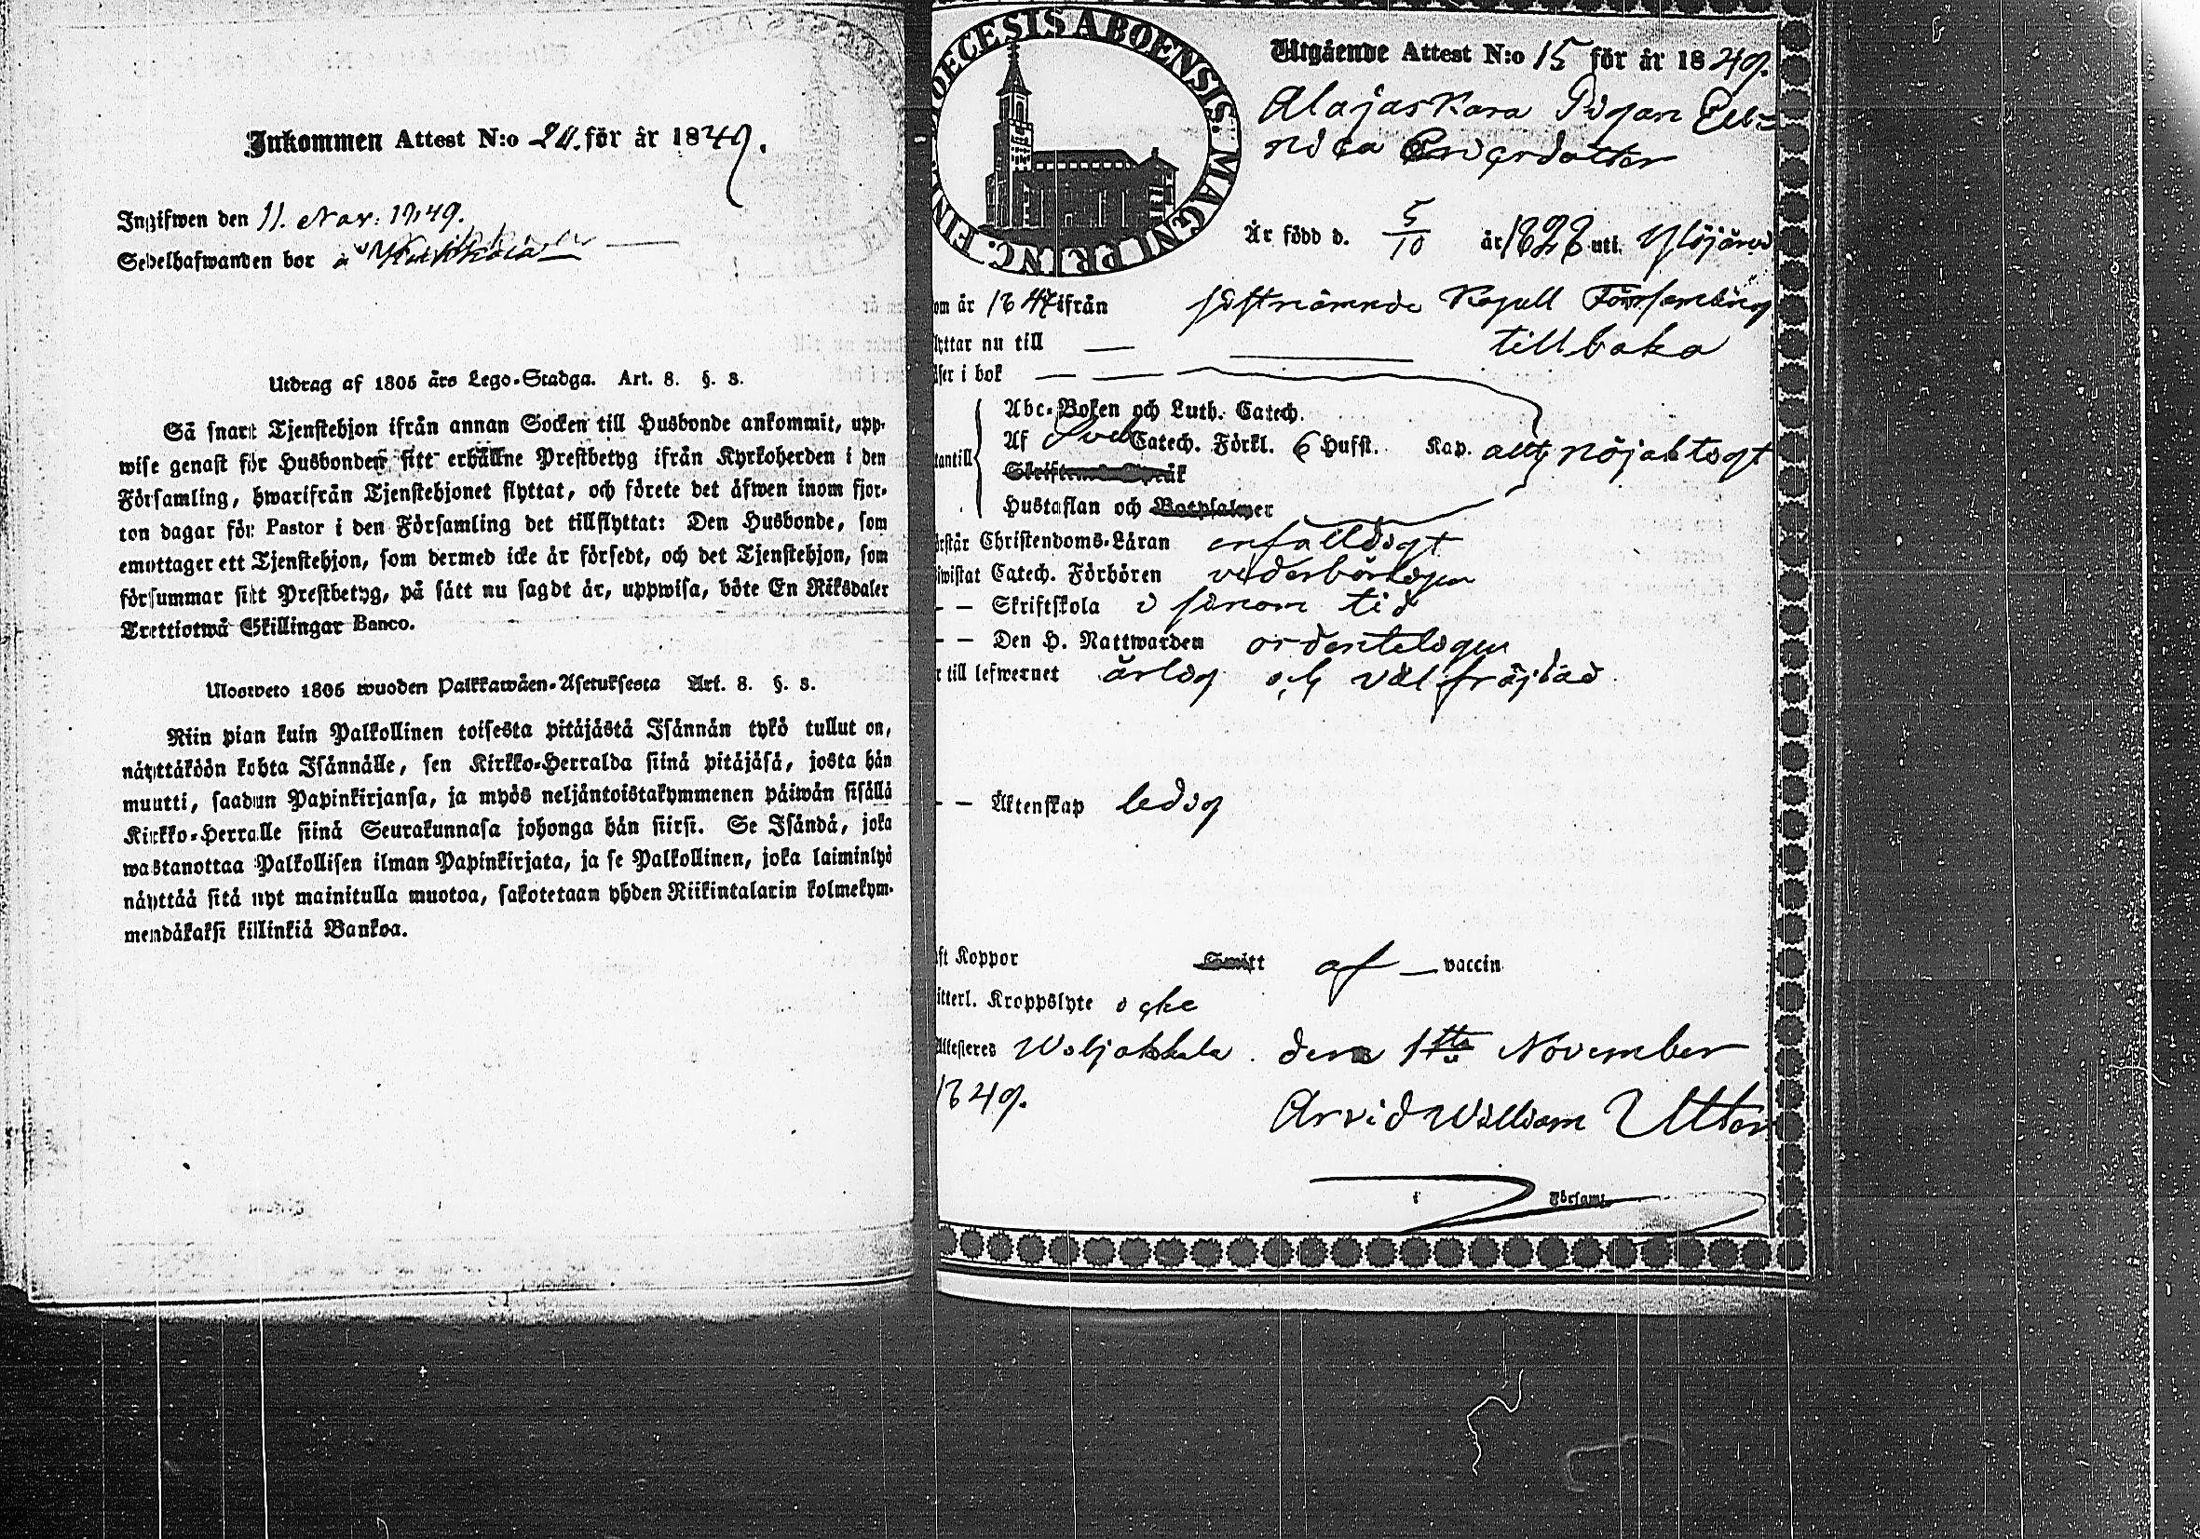 Inkommen Attest N:o 20. för år 1849.
Ingifwen den 11. Nov. 1849.
Sedelhafwanden bor å
Utdrag af 1805 års Lego-Stadga. Art. 8. §. 3.
Så snart Tjenstehjon ifrån annan Socken till Husbonde ankommit, upp-
wise genast för Husbonden sitt erhållne Prestbetyg ifrån Kyrkoherden i den
Församling, hwarifrån Tjenstehjonet flyttat, och förete det åfwen inom fjor-
ton dagar för Pastor i den Församling det tillflyttat: Den Husbonde, som
emottager ett Tjenstehjon, som dermed icke år försedt, och det Tjenstehjon, som
försummar sitt Prestbetyg, på sätt nu sagdt år, uppwisa, böte En Riksdaler
Trettiotwå Skillingar Banco.
Ulosweto 1805 wuoden Palkkawäen-Asetuksesta Art. 8. §. 3.
Niin pian kuin Palkollinen toisesta pitäjästä Isännän tykö tullut on,
näyttäköön kohta Isännälle, sen Kirkko-Herralda siinä pitäjäsä, josta hän
muutti, saadun Papinkirjansa, ja myös neljäntoistakymmenen päiwän sisällä
Kirkko-Herralle siinä Seurakunnasa johonga hän siirsi. Se Isändä, joka
wastanottaa Palkollisen ilman Papinkirjata, ja se Palkollinen, joka laiminlyö
näyttää sitä nyt mainitulla muotoa, sakotetaan yhden Riikintalarin kolmekym-
mendäkaksi killinkiä Bankoa.
DIOECESIS ABOENSIS. MAGNI PRINC. FINL.
Utgående Attest N:o 15 för år 1849.
Alajaskara Pigan Eeb-
Ericsdotter
Är född d. 5/10 år 1828 uti Ylöjärvi
om år 1847 ifrån sistnämnde Kapell Församling
lyttar nu till — — tillbaka
äser i bok — —
Abc-Boken och Luth. Catech.
Af Sveb. Catech. Förkl. 6 Hufst. Kap. allt nöjaktigt
tantill
Skriftens Språk
Hustaflan och Botpsalmer
örstår Christendoms-Läran enfalldigt
iwistat Catech. Förhören vederbörligen
— — Skriftskola i sinom tid
— — Den H. Nattwarden ordenteligen
r till lefwernet ärlig och väl fräjdad
— — Äktenskap ledig
ft Koppor Smitt af — vaccin
itterl. Kroppslyte icke
Attesteres Woljakkala den 1sta November
1849.
Arvid William Utter
i Församl.